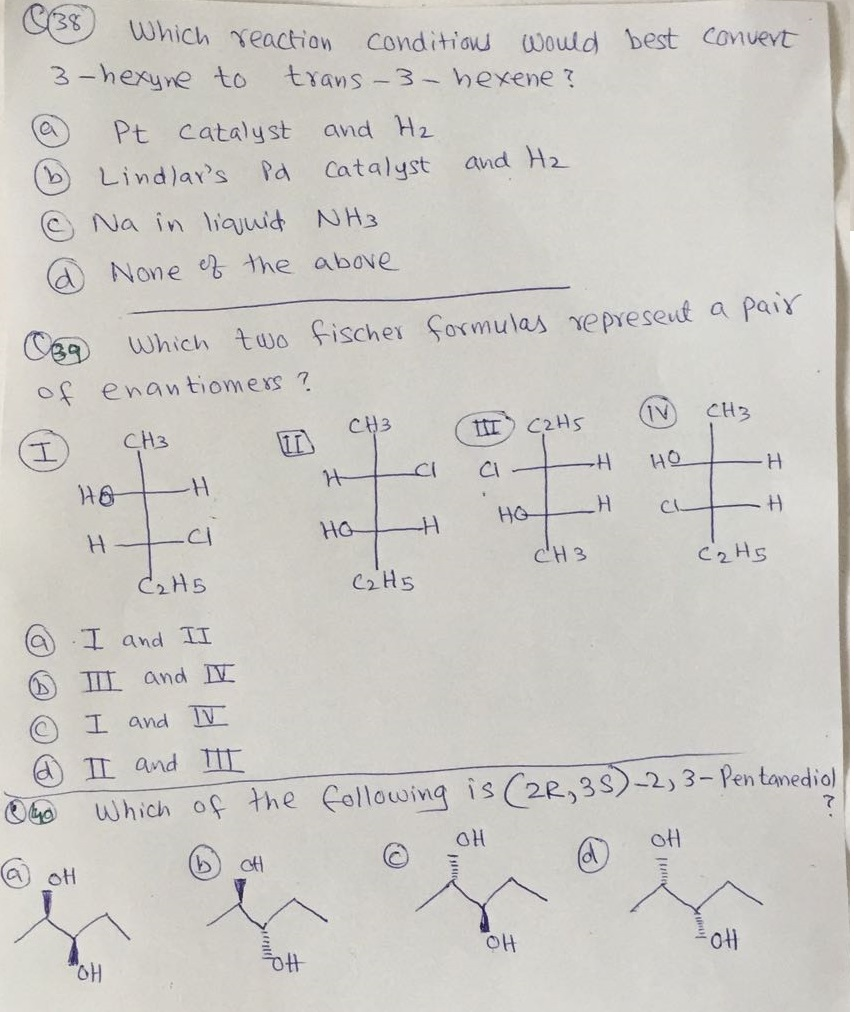 Q38 Which reaction conditions would best convert
3-hexyne to trans-3-hexene?
a Pt catalyst and H2
b Lindlar's Pd catalyst and H2
c Na in liquid NH3
d None of the above
Q39 Which two fischer formulas represent a pair
of enantiomers?
I
CH3
HO H
H Cl
C2H5
II
CH3
H Cl
HO H
C2H5
III
C2H5
Cl H
HO H
CH3
IV
CH3
HO H
Cl H
C2H5
a I and II
b III and IV
c I and IV
d II and III
Q40 Which of the following is (2R,3S)-2,3-Pentanediol
?
a OH
OH
b OH
OH
c OH
OH
d OH
OH